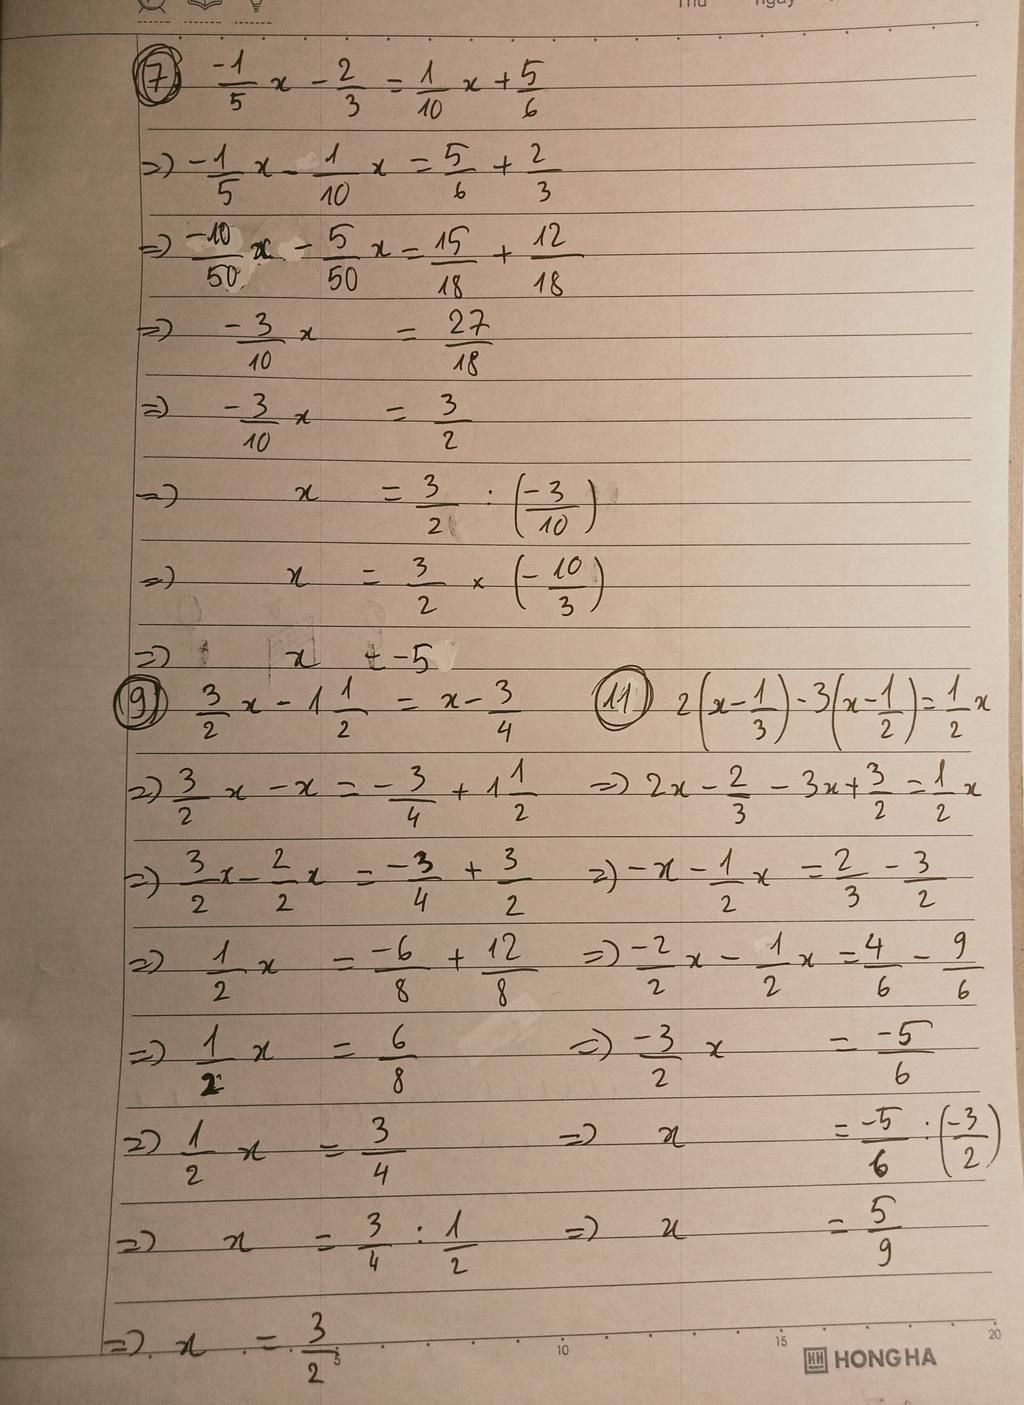 Thứ ngày
7 -1/5 x - 2/3 = 1/10 x + 5/6
=> -1/5 x - 1/10 x = 5/6 + 2/3
=> -10/50 x - 5/50 x = 15/18 + 12/18
=> -3/10 x = 27/18
=> -3/10 x = 3/2
=> x = 3/2 : (-3/10)
=> x = 3/2 × (-10/3)
=> x = -5
9 3/2 x - 1 1/2 = x - 3/4
=> 3/2 x - x = -3/4 + 1 1/2
=> 3/2 x - 2/2 x = -3/4 + 3/2
=> 1/2 x = -6/8 + 12/8
=> 1/2 x = 6/8
=> 1/2 x = 3/4
=> x = 3/4 : 1/2
=> x = 3/2
11 2(x - 1/3) - 3(x - 1/2) = 1/2 x
=> 2x - 2/3 - 3x + 3/2 = 1/2 x
=> -x - 1/2 x = 2/3 - 3/2
=> -2/2 x - 1/2 x = 4/6 - 9/6
=> -3/2 x = -5/6
=> x = -5/6 : (-3/2)
=> x = 5/9
5 10 15 20
HH HONG HA